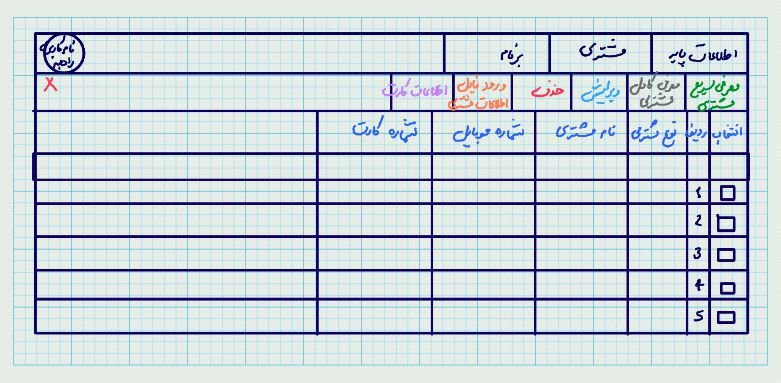 اطلاعات پایه مشتری برنام
نام کاربری
معرفی سریع مشتری
معرفی کامل مشتری
ویرایش
حذف
ورود فایل
اطلاعات مشتری
اطلاعات کارت
X
انتخاب ردیف نوع مشتری نام مشتری شماره موبایل شماره کارت
1
2
3
4
5